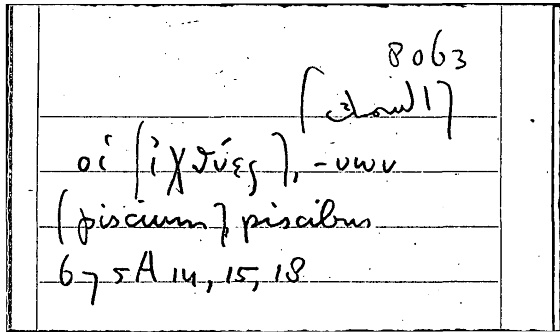 8063
οἱ [ἰχθύες], -υων
[piscium] piscibus
675A 14, 15, 18